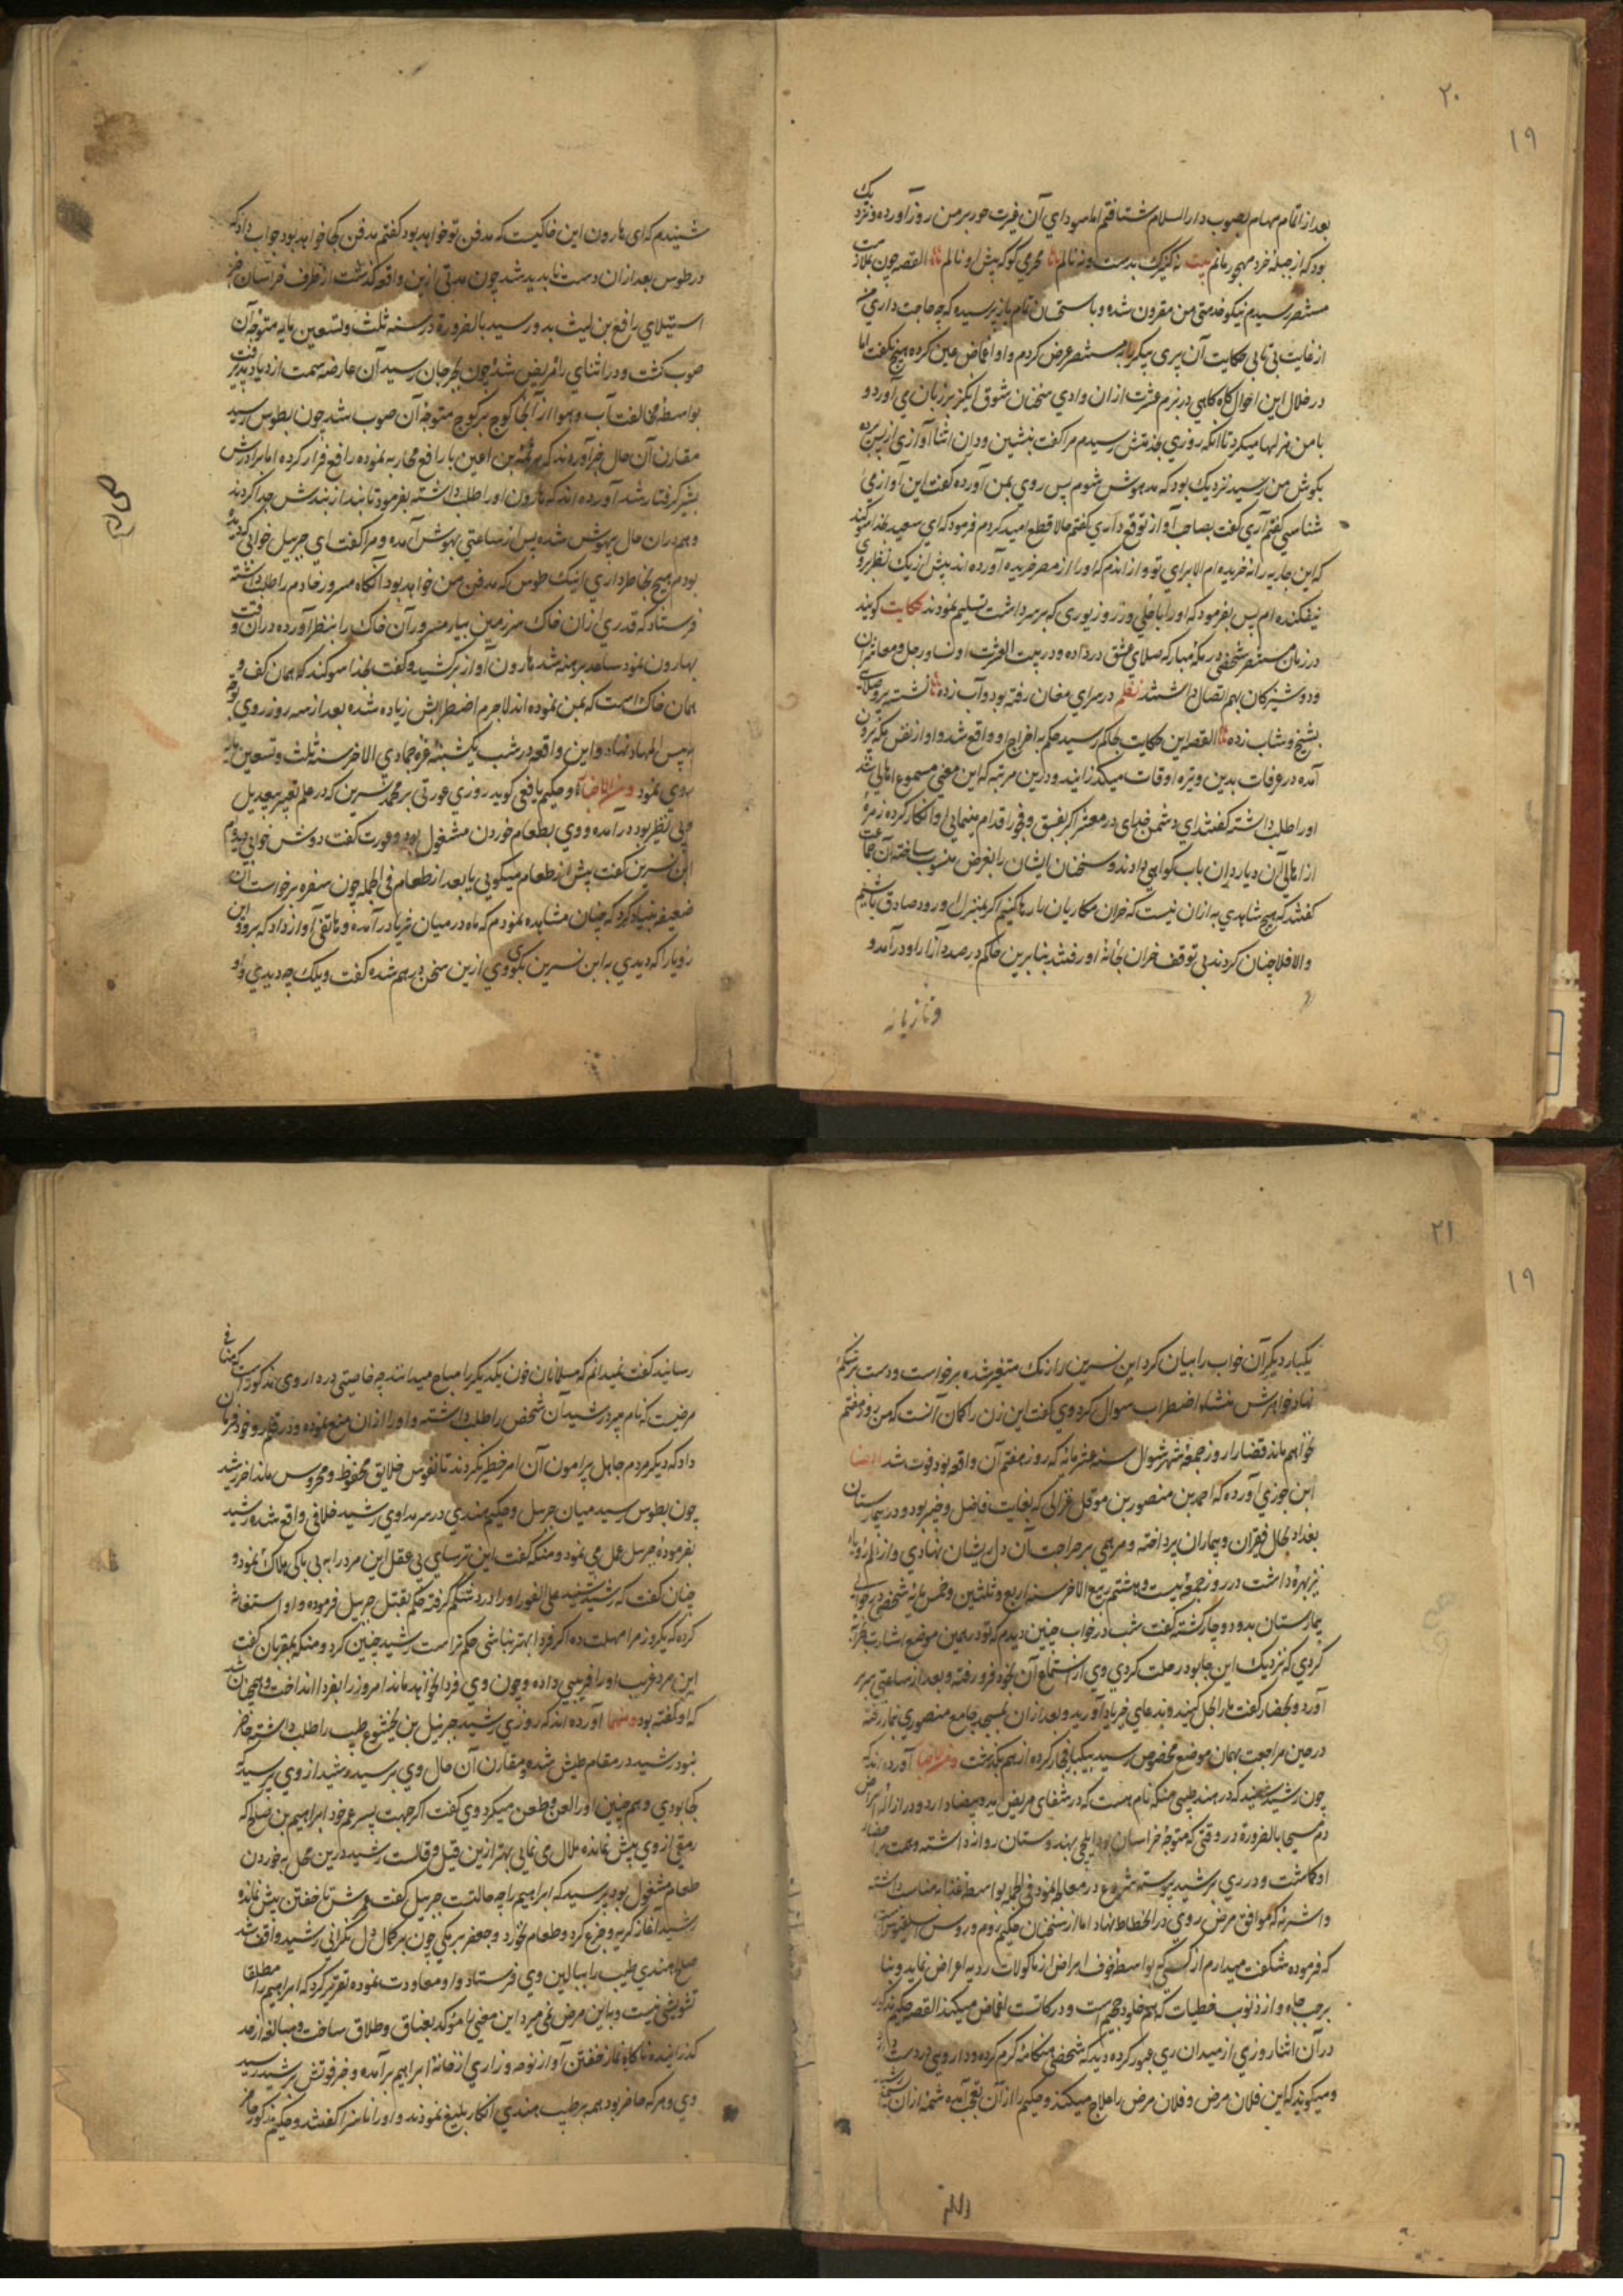 ۲۰
۱۹
بعد از اتمام مهام بصوب دارالسلام شتافتم اما سوداي آن غیرت حور بر من روز آورده و نزدیک
بود که از جملهٔ خرد مهجور مانم بیت نه کنیزک بدست و نه نالم محرمي کو که پیش او نالم القصه چون بملازمت
مستنصر رسیدم نیکو خدمتی من مقرون شده و باستحسان تام باز پرسیده که چه حاجت داري من
از غایت بی تابی حکایت آن پری پیکر بر مستنصر عرض کردم و او اغماض عین کرده هیچ نگفت اما
در خلال این احوال گاه گاهی در بزم عشرت از ان وادي سخنان شوق انگیز بر زبان مي آورد و
با من هزلها میکرد تا انکه روزي بخدمتش رسیدم مرا گفت بنشین و دران اثنا آوازي از پس پرده
بگوش من رسید نزدیک بود که مدهوش شوم پس روي بمن آورده گفت این آواز مي
شناسي گفتم آري گفت بصاحب آواز توقع داري گفتم حالا قطع امید کردم فرمود که اي سعید بخدا سوکند
که این جاریه را نخریده ام الا برای تو و از اندم که او را از مصر خریده آورده اند بیش از یک نظر بروی
نیفکنده ام پس بفرمود که او را با حلي و زر و زیوری که بر سر داشت تسلیم نمودند حکایت کویند
در زمان مستنصر شخصی در مکهٔ مبارکه صلاي عشق در داده و در بیت العشرت او نسا و رجل و معاشران
و دوشیزکان بهم اتصال داشتند نظم در سراي مغان رفته بود و آب زده نشسته پیر و صلایی
بشیخ و شاب زده القصه این حکایت بحاکم رسید حکم به اخراج او واقع شد و او از نفس مکه بیرون
آمده در عرفات بدین وتیره اوقات میکذرانید و درین مرتبه که این معني مسموع اهالي شد
او را طلب داشته کفتند اي دشمن خدای در معشر اکبر بفسق و فجور اقدام مینمایي او انکار کرده زمرهٔ
از اهالي آن دیار دران باب کواهي دادند و سخنان ایشان را بغرض منسوب ساخته آن جماعت
کفتند که هیچ شاهدي به ازان نیست که خران مکاریان را رها کنیم اکر بمنزل او رود صادق باشیم
والا فلا چنان کردند بی توقف خران بخانهٔ او رفتند بنابرین حاکم در صدد آزار او درآمد و
و تازیانه
شنیدم که ای هارون این خاکیست که مدفن تو خواهد بود کفتم مدفن کجا خواهد بود جواب داد که
در طوس بعد ازان دست نا پدید شد چون مدتي ازین واقعه کذشت از طرف خراسان خبر
استیلاي رافع بن لیث بدو رسید بالضرورة در سنه ثلث و تسعین مایه متوجه آن
صوب کشت و در اثناي راه مریض شد چون بجرجان رسید آن عارضه سمت ازدیاد پذیرفت
بواسطه مخالفت آب و هوا از آنجا کوچ بر کوچ متوجه آن صوب شد چون بطوس رسید
مقارن آن حال خبر آوردند که هرثمة بن اعین با رافع محاربه نموده رافع فرار کرده اما برادرش
بشیر کرفتار شد آورده اند که هارون او را طلب داشته بفرمود تا بند از بندش جدا کردند
و هم دران حال بیهوش شده پس از ساعتي بهوش آمده و مرا کفت اي جبریل خوابي که دیده
بودم هیچ بخاطر داري اینک طوس که مدفن من خواهد بود آنکاه مسرور خادم را طلب داشته
فرستاد که قدري ازان خاک سرزمین بیار مسرور آن خاک را بنظر آورده دران وقت
بهارون نمود ساعد برهنه شد هارون آواز برکشید و کفت بخدا سوکند که همان کف و
همان خاک است که بمن نموده اند لاجرم اضطرابش زیاده شده بعد از سه روز روي بتوبه
پس المهاد نهاد و این واقعه در شب یکشنبه غره جمادي الاخر سنه ثلث و تسعین مایه
روي نمود و من الاخبار و حکیم یافعي کوید روزي عورتي بر محمد سیرین که در علم تعبیر بی بدیل
و بی نظیر بود درآمده و وي بطعام خوردن مشغول بود و عورت کفت دوش خوابي دیده ام
ابن سیرین کفت پیش از طعام میکویي یا بعد از طعام في الجمله چون سفره برخواست آن
ضعیفه بنیاد کرد که چنان مشاهده نمودم که ماه در میان ثریا درآمده و هاتفي آواز داد که برو و این
رویا را که دیدي به ابن سیرین بکوي وي ازین سخن درهم شده کفت ویلک چه دیدي و او
۲۱
۱۹
یکبار دیکر آن خواب را بیان کرد ابن سیرین را رنک متغیر شده برخواست و دست بر شکم
نهاد خواهرش منشاء اضطراب سوال کرد وي کفت این زن را کمان آنست که من روز هفتم
نخواهم ماند قضارا روز جمعهٔ شهر شوال سنه عشر مایه که روز هفتم آن واقعه بود فوت شد ایضا
ابن جوزي آورده که احمد بن منصور بن موقل غزالی که بغایت فاضل و خیر بود و در بیمارستان
بغداد بحال فقیران و بیماران پرداخته و مرهمي بر جراحت آن دل ریشان نهادي و از علم رویاء
نیز بهره داشت در روز جمعه بیست و هشتم ربیع الاخر سنه اربع و ثلثین و خمس مایه شخصي در حوالي
بیمارستان بدو دوچار کشته کفت شب در خواب چنین دیدم که تو در همین موضع اشارت بقرآنی
کردي که نزدیک این جا بود رحلت کردي وي از استماع آن بخود فرو رفته و بعد از ساعتي سر بر
آورد و بحضار کفت ما را بحل کنید و بدعایي خیر یاد آورید و بعد ازان بمسجد جامع منصوري بنماز رفته
در حین مراجعت بهمان موضع مخصوص رسید بیکبار فجأ کرده از هم بکذشت و من الاخبار آورده اند که
چون رشید شنید که در هند طبیبي منکه نام هست که در شفاي مریض ید بیضا دارد و در ازاله امراض
دم مسیحا بالضرورة در وقتی که متوجه خراسان بود ایلچی بهندوستان روانه داشته و همت بر احضار
او کماشت و در ري برشید پیوسته شروع در معالجه نمود في الجمله بواسطه غذاء مناسب داشته
و اشربهٔ که موافق مرض روي در انحطاط نهاد اما از سخنان حکیم
که فرموده شکفت میدارم از کسي که بواسطه خوف امراض از ماکولات ردیه اعراض نماید و بنا
بر حب جاه و از ذنوب خطیات که بیم خلود جحیم است و درکاتست اغماض میکند القصه حکیم مذکور
در آن اثنا روزي از میدان ري عبور کرده دید که شخصي هنکامهٔ کرم کرده و دارویي در دست دارد
و میکوید که این فلان مرض و فلان مرض را علاج میکند و حکیم را از آن تعجب آمده شمهٔ ازان برشید
رسانید کفت نمیدانم که مسلمانان خون یکدیکر را مباح میدانند چه خاصیتي در داروی مذکور است که مناف
مرضیست که نام میبرد رشید آن شخص را طلب داشته و او را ازان منع نموده و در قلمرو خود فرمان
داد که دیکر مردم جاهل پیرامون آن امر خطیر نکردند تا نفوس خلایق محفوظ و محروس ماند اخر رشید
چون بطوس رسید میان جبریل و حکیم هندي در سر مداواي رشید خلافي واقع شده رشید
بفرمودهٔ جبریل عمل مي نمود و منکه کفت این ترساي بي عقل این مرد را به بی باکی هلاک نمود و
چنان کفت که رشید شنید علی الفور او را درد شکم کرفته حکم بقتل جبریل فرموده و او استغاثه
کرده که یکروز مرا مهلت ده اکر فردا بهتر نباشی حکم تراست رشید چنین کرد و منکه بمقربان کفت
این مرد غریب او را فریبي داده و چون وي فردا نخواهد ماند امروز را بفردا انداخت و همچنان شد
که او کفته بود و منها آورده اند که روزي رشید جبرئیل بن بختیشوع طبیب را طلب داشته حاضر
نبود رشید در مقام طیش شده و مقارن آن حال وي برسید رشید از وي پرسید که
کجا بودي و همچنین او را لعن و طعن میکرد وي کفت اکر جهت پسر عم خود ابراهیم بن صالح که
رمقي از وي بیش نمانده ملال مي نمایي بهتر ازین قیل و قالست رشید درین محل به خوردن
طعام مشغول بود پرسید که ابراهیم را چه حالتست جبریل کفت وي تا خفتن بیش نمانده
رشید آغاز کریه و فزع کرد و طعام نخورد و جعفر برمکي چون بر کمال دل نکراني رشید واقف شد
صالح هندي طبیب را ببالین وي فرستاد و او معاودت نموده تقریر کرد که ابراهیم را مطلقا
تشویشي نیست و باین مرض نمی میرد این معني را موکد بعتاق و طلاق ساخت و مبالغه از حد
کذرانیده ناکاه نماز خفتن آواز نوحه و زاري از خانهٔ ابراهیم برآمده و خبر فوتش برشید رسید
وي و هر که حاضر بود همه بر طبیب هندي انکار بلیغ نمودند و او را ناسزا کفتند و حکیم مذکور حاضر